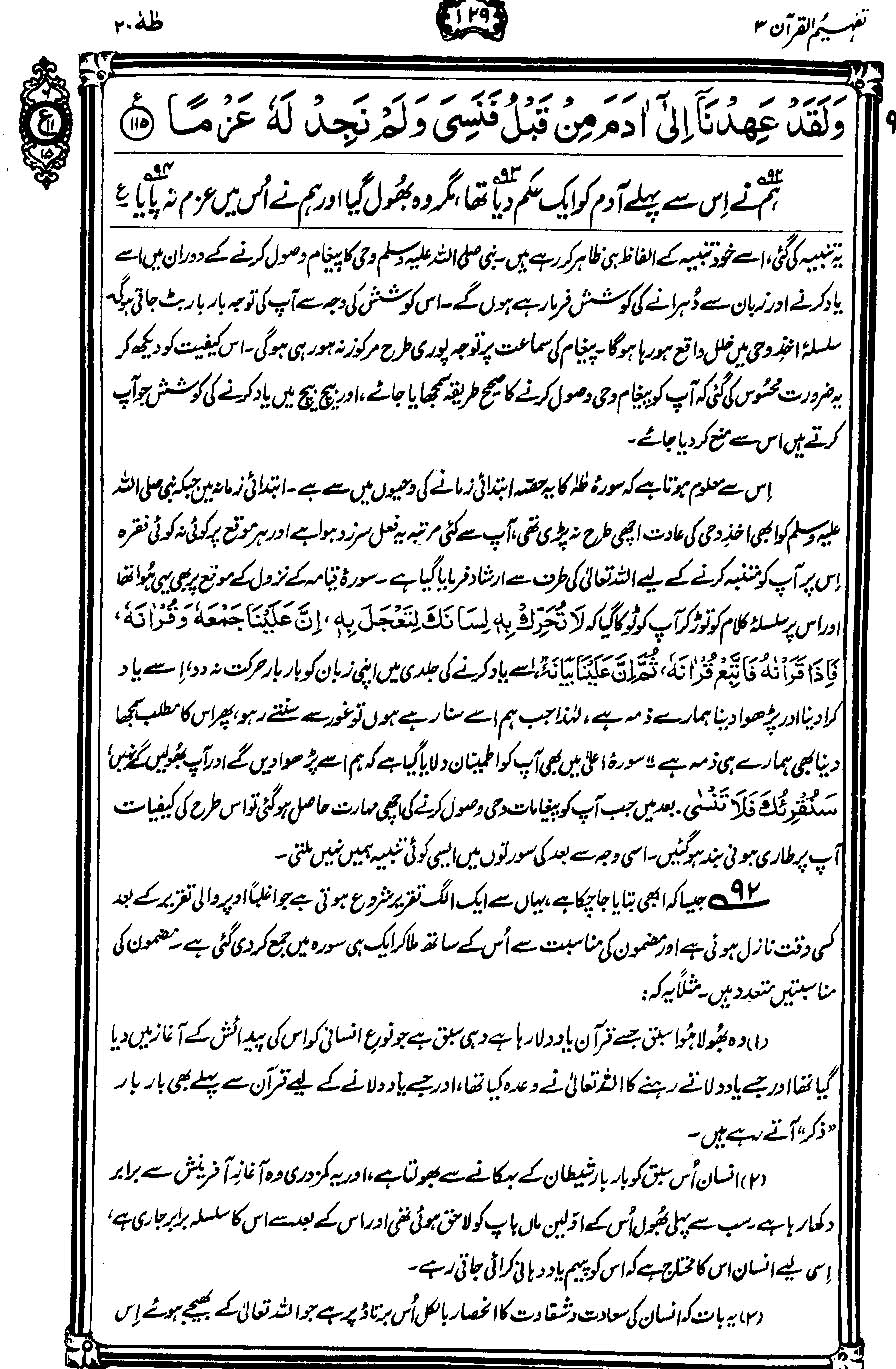 تفہیم القرآن ۳
۱۲۹
طٰہٰ ۲۰
وَلَقَدْ عَهِدْنَآ اِلٰٓى اٰدَمَ مِنْ قَبْلُ فَنَسِىَ وَلَمْ نَجِدْ لَهٗ عَزْمًا ۝۱۱۵
ہم نے۹۲ اِس سے پہلے آدم کو ایک حکم دیا۹۳ تھا، مگر وہ بھُول گیا اور ہم نے اُس میں عزم نہ پایا۹۴ ع
یہ تنبیہ کی گئی، اسے خود تنبیہ کے الفاظ ہی ظاہر کر رہے ہیں۔ نبی صلی اللہ علیہ وسلم وحی کا پیغام وصول کرنے کے دوران میں اسے
یاد کرنے اور زبان سے دُہرانے کی کوشش فرما رہے ہوں گے۔ اس کوشش کی وجہ سے آپ کی توجہ بار بار بٹ جاتی ہوگی۔
سلسلۂ اخذِ وحی میں خلل واقع ہو رہا ہوگا۔ پیغام کی سماعت پر توجہ پوری طرح مرکوز نہ ہو رہی ہوگی۔ اس کیفیت کو دیکھ کر
یہ ضرورت محسُوس کی گئی کہ آپ کو پیغام وحی وصول کرنے کا صحیح طریقہ سمجھایا جائے، اور بیچ بیچ میں یاد کرنے کی کوشش جو آپ
کرتے ہیں اس سے منع کر دیا جائے۔
اِس سے معلوم ہوتا ہے کہ سورۂ طٰہٰ کا یہ حصّہ ابتدائی زمانے کی وحیوں میں سے ہے۔ ابتدائی زمانہ میں جبکہ نبی صلی اللہ
علیہ وسلم کو ابھی اخذِ وحی کی عادت اچھی طرح نہ پڑی تھی، آپ سے کئی مرتبہ یہ فعل سرزد ہوا ہے اور ہر موقع پر کوئی نہ کوئی فقرہ
اِس پر آپ کو متنبہ کرنے کے لیے اللہ تعالیٰ کی طرف سے ارشاد فرمایا گیا ہے۔ سورۂ قیامہ کے نزول کے موقع پر بھی یہی ہُوا تھا
اور اس پر سلسلۂ کلام کو توڑ کر آپ کو ٹوکا گیا کہ لَا تُحَرِّكْ بِهٖ لِسَانَكَ لِتَعْجَلَ بِهٖ، اِنَّ عَلَيْنَا جَمْعَهٗ وَقُرْاٰنَهٗ،
فَاِذَا قَرَاْنٰهُ فَاتَّبِعْ قُرْاٰنَهٗ، ثُمَّ اِنَّ عَلَيْنَا بَيَانَهٗ، اسے یاد کرنے کی جلدی میں اپنی زبان کو بار بار حرکت نہ دو، اِسے یاد
کرا دینا اور پڑھوا دینا ہمارے ذمہ ہے، لہٰذا جب ہم اسے سنا رہے ہوں تو غور سے سنتے رہو، پھر اس کا مطلب سمجھا
دینا بھی ہمارے ہی ذمہ ہے“ سورۂ اعلیٰ میں بھی آپ کو اطمینان دلایا گیا ہے کہ ہم اسے پڑھوا دیں گے اور آپ بھُولیں گے نہیں،
سَنُقْرِئُكَ فَلَا تَنْسٰى. بعد میں جب آپ کو پیغامات وحی وصول کرنے کی اچھی مہارت حاصل ہو گئی تو اس طرح کی کیفیات
آپ پر طاری ہونی بند ہو گئیں۔ اسی وجہ سے بعد کی سورتوں میں ایسی کوئی تنبیہ ہمیں نہیں ملتی۔
۹۲ جیسا کہ ابھی بتایا جا چکا ہے، یہاں سے ایک الگ تقریر شروع ہوتی ہے جو اغلباً اوپر والی تقریر کے بعد
کسی وقت نازل ہوئی ہے اور مضمون کی مناسبت سے اُس کے ساتھ ملا کر ایک ہی سورہ میں جمع کر دی گئی ہے۔ مضمون کی
مناسبتیں متعدد ہیں۔ مثلاً یہ کہ:
(۱) وہ بھُولا ہُوا سبق جسے قرآن یاد دلا رہا ہے وہی سبق ہے جو نوعِ انسانی کو اس کی پیدائش کے آغاز میں دیا
گیا تھا اور جسے یاد دلاتے رہنے کا اللہ تعالیٰ نے وعدہ کیا تھا، اور جسے یاد دلانے کے لیے قرآن سے پہلے بھی بار بار
”ذکر“ آتے رہے ہیں۔
(۲) انسان اُس سبق کو بار بار شیطان کے بہکانے سے بھولتا ہے، اور یہ کمزوری وہ آغازِ آفرینش سے برابر
دکھا رہا ہے۔ سب سے پہلی بھُول اُس کے اوّلین ماں باپ کو لاحق ہوئی تھی اور اس کے بعد سے اس کا سلسلہ برابر جاری ہے،
اِسی لیے انسان اس کا محتاج ہے کہ اس کو پیہم یاد دہانی کرائی جاتی رہے۔
(۳) یہ بات کہ انسان کی سعادت و شقاوت کا انحصار بالکل اُس برتاؤ پر ہے جو اللہ تعالیٰ کے بھیجے ہوئے اِس